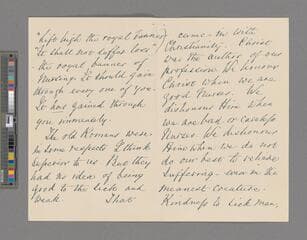 "Lift high the royal banner
It shall not suffer loss"
the royal banner of
Nursing. It should gain
through every one of you.
It has gained through
you immensely.
The old Romans were
in some respects I think
superior to us. But they
had no idea of being
good to the sick and
weak. That
came in with
Christianity. Christ
was the author of our
profession. We honour
Christ when we are
good Nurses. We
dishonour Him when
we are bad or careless
Nurses. We dishonour
Him when we do not
do our best to relieve
suffering - even in the
meanest creature.
Kindness to sick man,